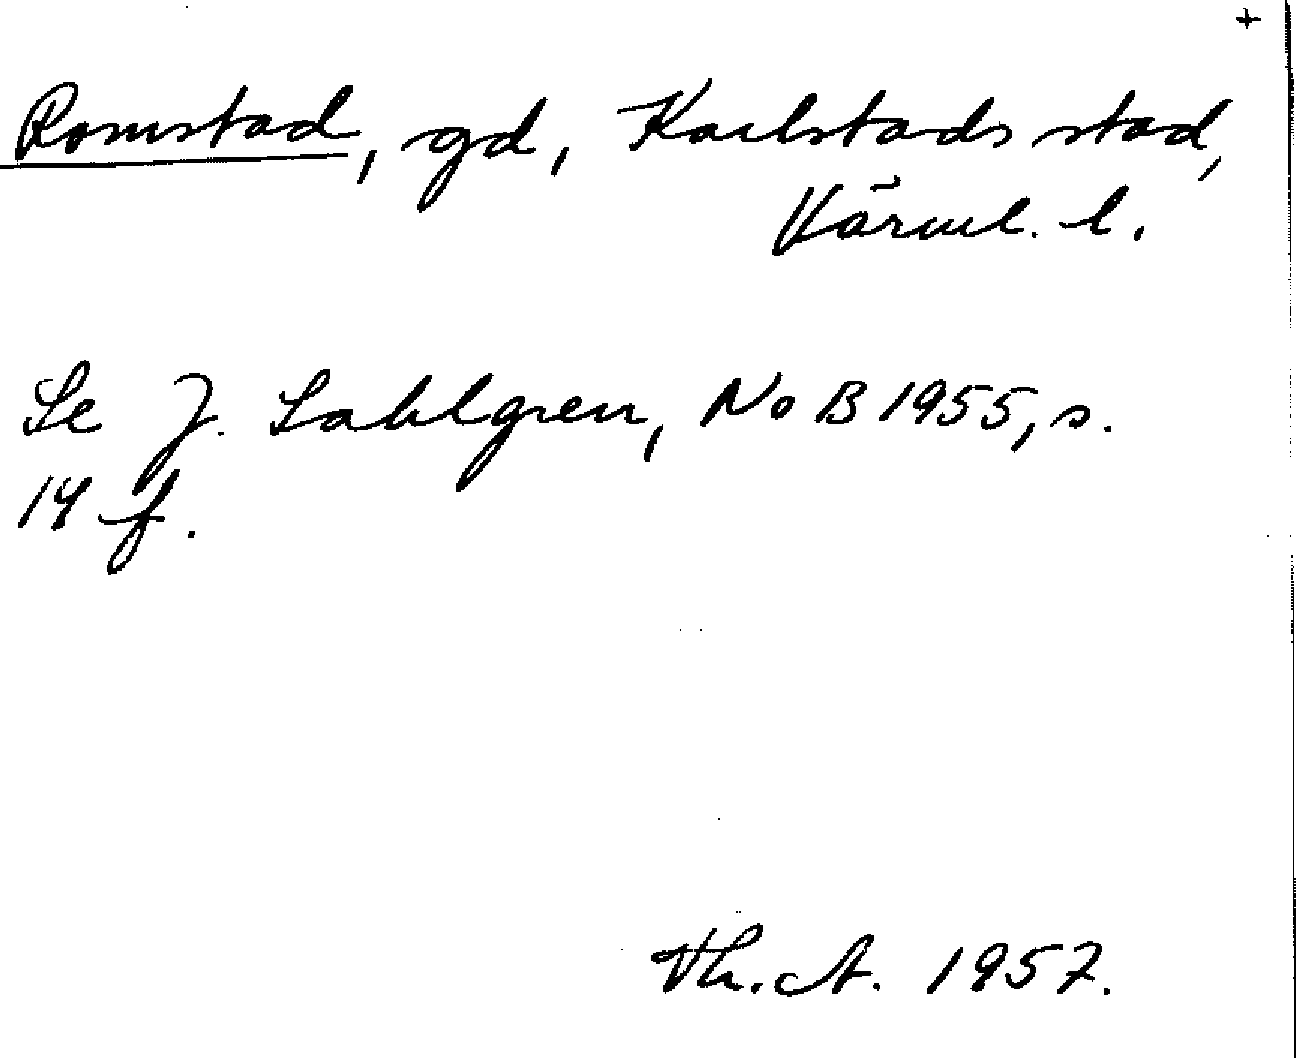 +
Romstad, gd, Karlstads stad,
Värml. l.
Se J. Sahlgren, NoB 1955, s.
14 f.
Th. A. 1957.